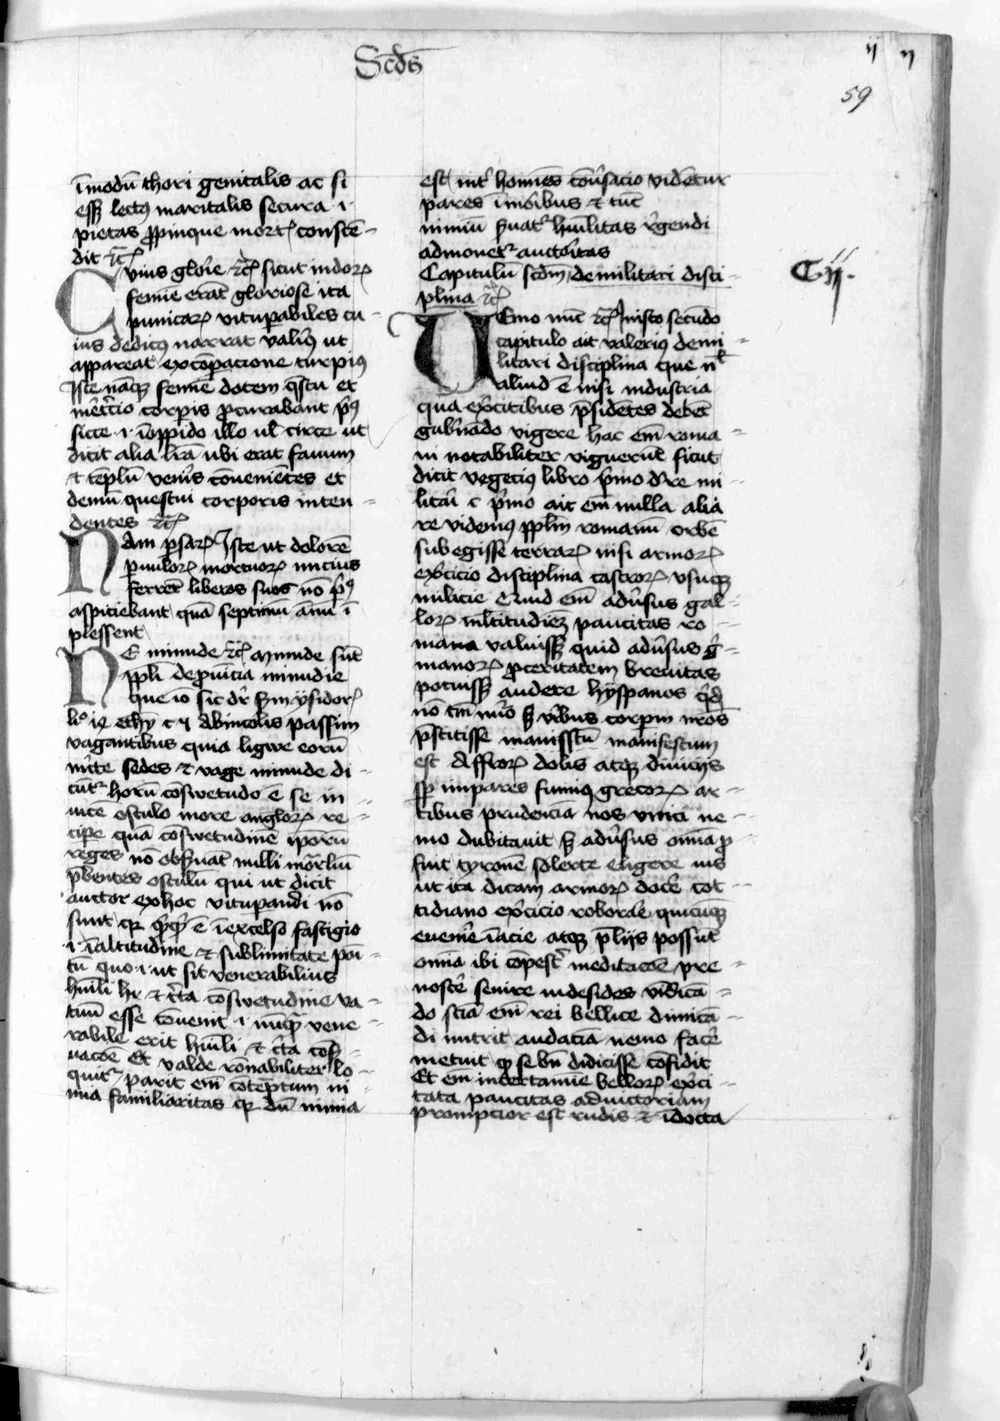 Scds
ij
n
59
ī modū thori genitalis ac si
essꝫ lectꝰ maritalis secura ·i·
pietas ꝓpinque mortꝭ conscē
dit ⁊cꝭ
Cuius glorie ⁊cꝭ sicut indoꝝ
femīe erāt gloriose ita
punicaꝝ vituꝑabiles cu
ius dedecꝰ narrat valiꝰ ut
appareat ex cōpacione turpiꝰ
Iste nāqꝫ femīe dotem qstu et
corꝑis ꝓcurabant
sicce ·i· ī oppido illo ul circe ut
dicit alia lrā ubi erat fanum
⁊ tēplū venīs cōuenientes et
demū questui corporis inten
dentes ⁊cꝭ
Nam psaꝝ Iste ut dolorē
ꝑuuloꝝ mortuoꝝ mīcius
ferrēt liberos suos nō pꝰ
aspiciebant quā septimū ānū ī
plessent
Ne minude ⁊cꝭ Numide sūt
ppli de ꝓuīcia minudie
que iō sic dr̄ Sm ysidoꝝ
liº ethy Ab incolis passim
vagantibus quia ligwe eorū
incte sedes ⁊ vage minude di
cūtr horū coswetudo ē se in
uicē osculo more angloꝝ re
cipe quā cōswetudinē ipoꝝ
reges nō obẜuāt nulli mortaliū
pbentes osculū qui ut dicit
auctor ex hoc vituperandi nō
sunt qꝛ ē ī excelso fastigio
·i· ī altitudine ⁊ sublimitate poi
tū quo ·i· ut sit venerabilius
humili hr ⁊ cōswetudine va
cuum esse cōuenit ·i· nūq̄ vene
rabile erit humili ⁊ cōs
uacōe Et valde rōnabiliter lo
quitr parit em cōteptum ni
mia familiaritas qꝛ dū nimia
est intr homīes cōuersacio videntur
pares ī moribus ⁊ tūc
nimiū ẜuatr humilitas regendi
admonetr auctoritas
Capitulū scdm de militari disci
plina ⁊cꝭ
Cij.
Uenio nunc ⁊cꝭ In isto secūdo
capitulo ait valerius de mi
litari disciplina que nl
aliud ē nisi industria
qua exercitibus psidētes debēt
gubnādo vigere hac em roma
ni notabiliter viguerūt sicut
dicit vegecius libro pmo de re mi
litari c pmo ait em nulla alia
re videmꝰ pplm romanū orbē
subegisse terraꝝ nisi armoꝝ
exercicio disciplina castroꝝ vsuqꝫ
milicie Quid em adūsus gal
loꝝ mltitudieꝫ paucitas ro
mana valuissꝫ quid adūsus ger
manoꝝ ꝓceritatem breuitas
potuissꝫ audere hyspanos
nō tm nūo ẜ viribus corꝑm nros
pstitisse manifestum
est Affroꝝ dolis atqꝫ diuiciis
sꝑ impares fuimꝰ grecoꝝ ar
tibus prudencia nos vinci ne
mo dubitauit ẜ adūsus omīa ꝓ
fuit tyronē solerte eligere ius
ut ita dicam armoꝝ docē cot
tidiano exercicio roborare quicūqꝫ
euenire ī acie atqꝫ pliis possūt
omīa ibi cāpestr meditacōe pre
noscē seuire in desides vīdicā
do scīa em rei bellice dimicā
di nutrit audaciā nemo facē
metuit qꝫ se bn didicisse cōfidit
Et em in certamine belloꝝ exci
tata paucitas ad victoriam
prompcior est rudis ⁊ īdocta